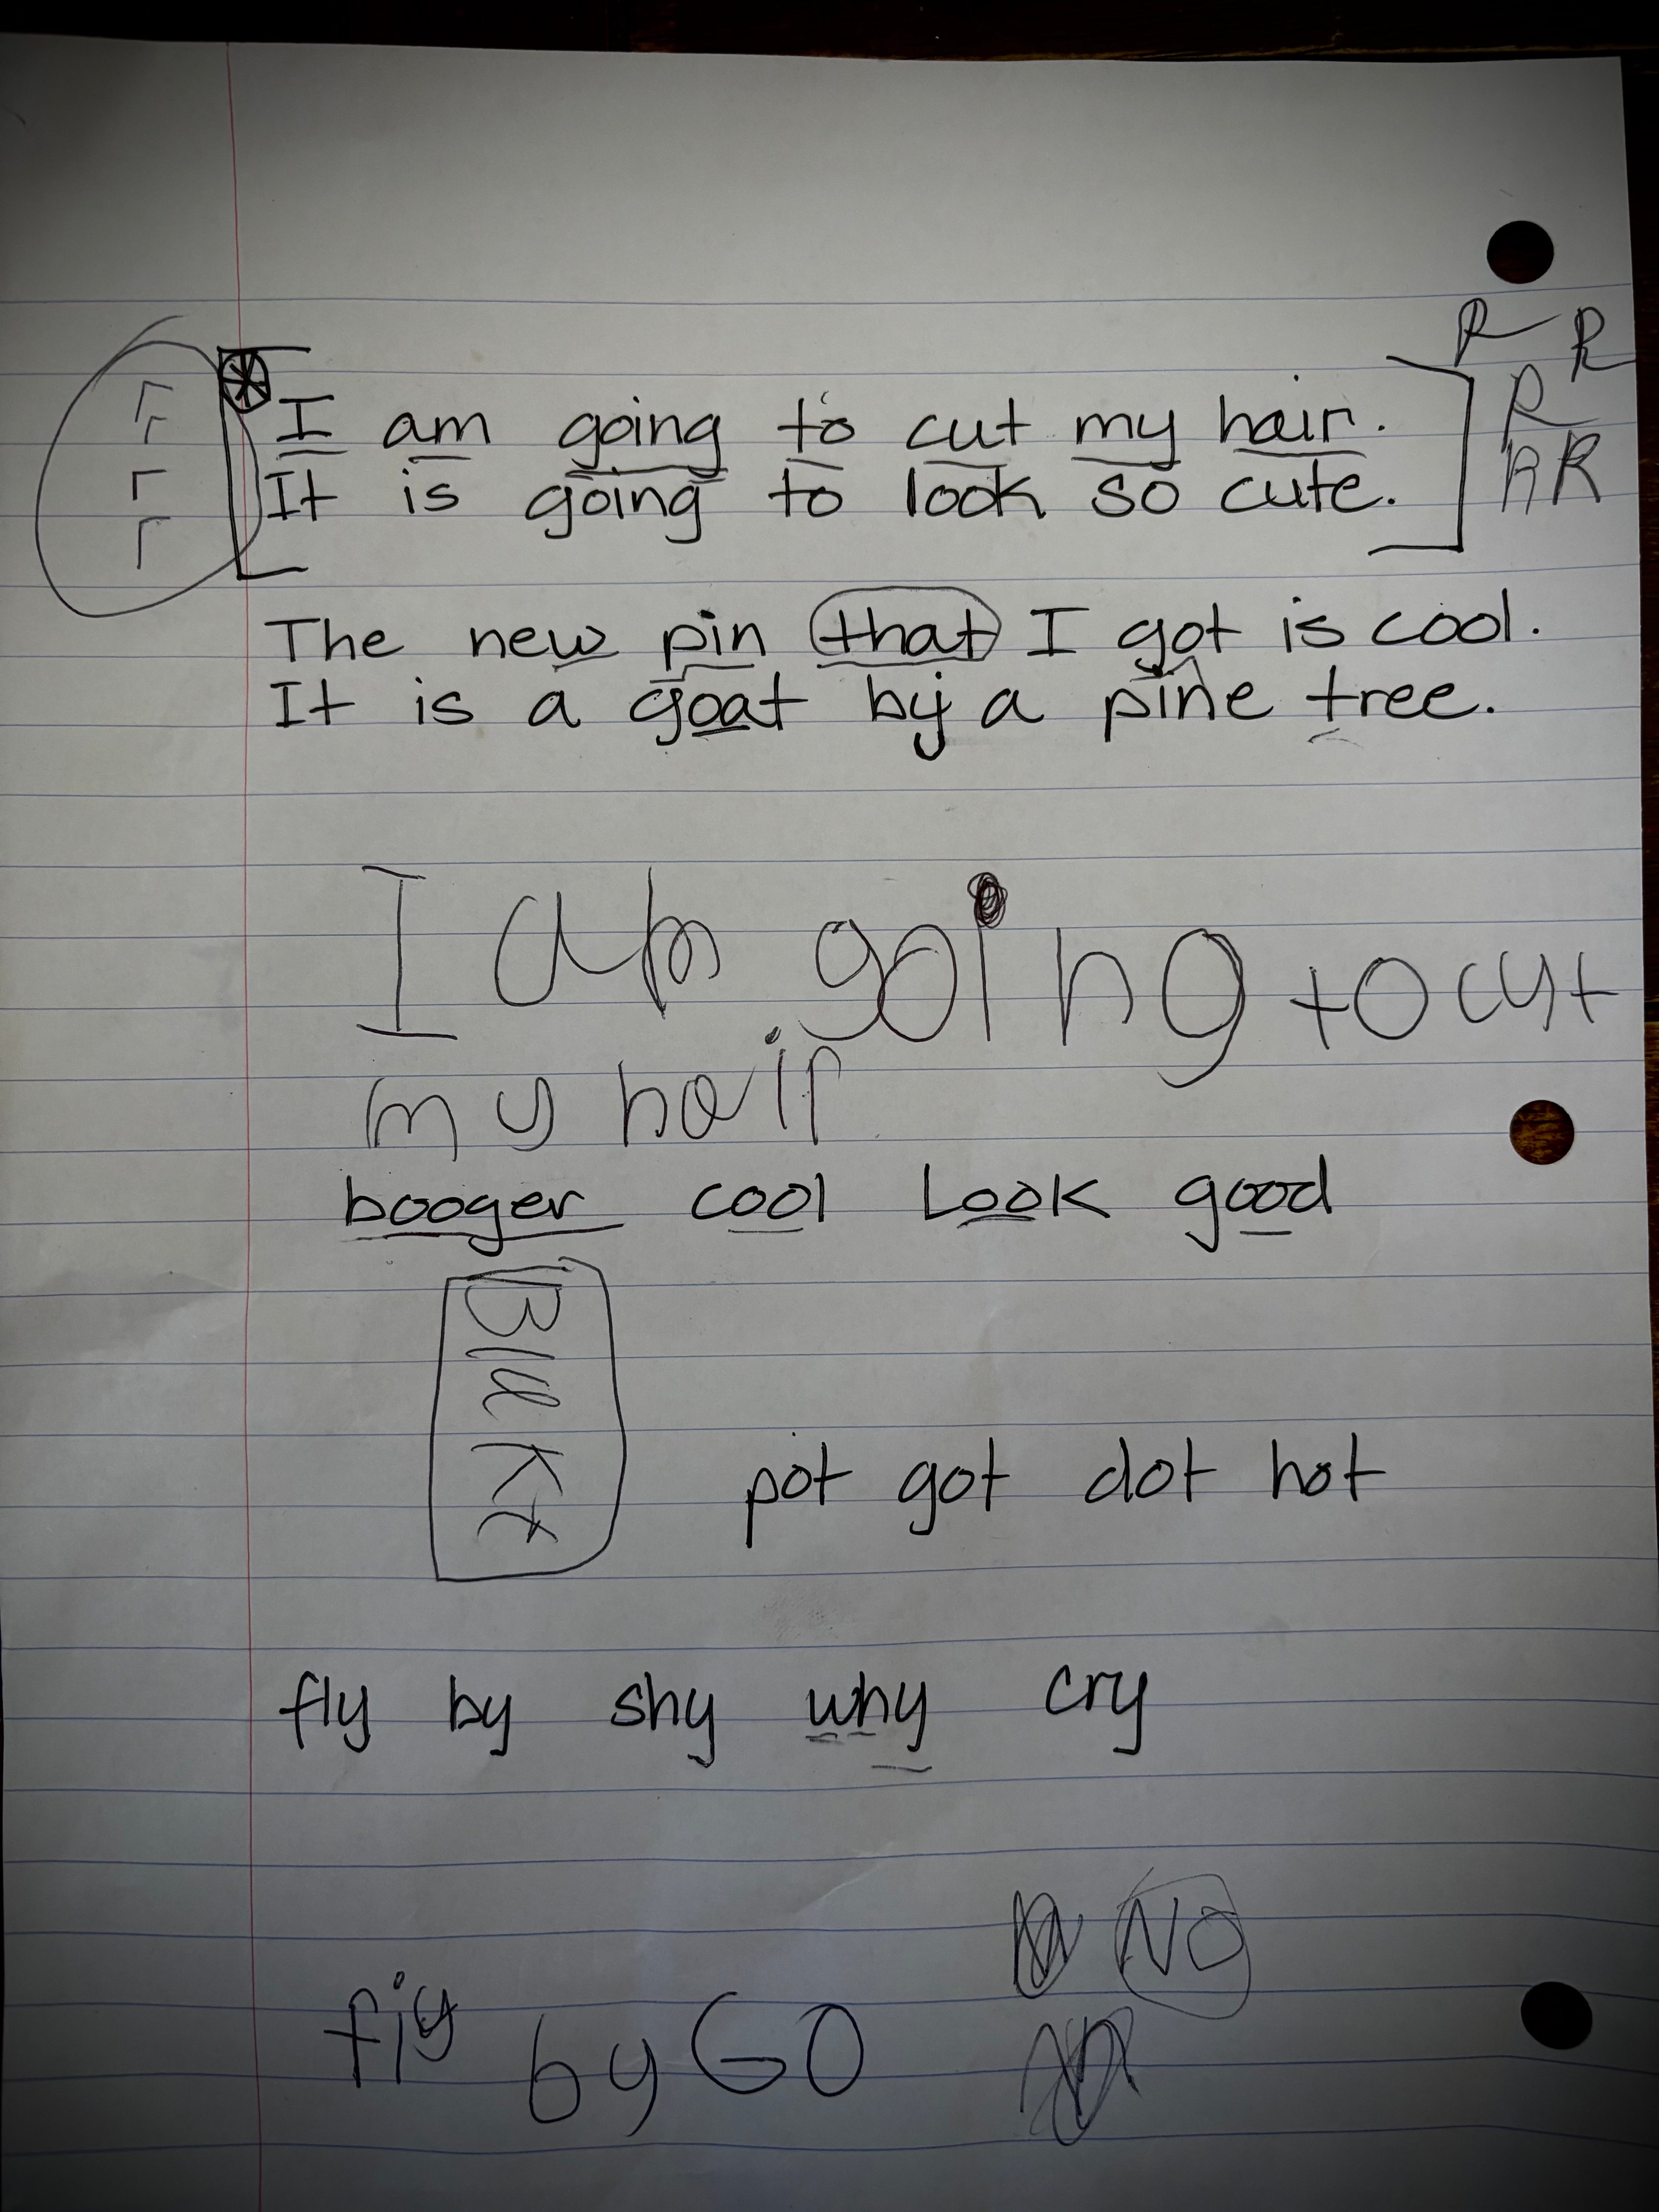 R R
r R
r I am going to cut my hair. R R
r It is going to look so cute.
r
The new pin that I got is cool.
It is a goat by a pine tree.
I am going to cut
my hair
booger cool Look good
pot got dot hot
fly by shy why cry
NO
by GO